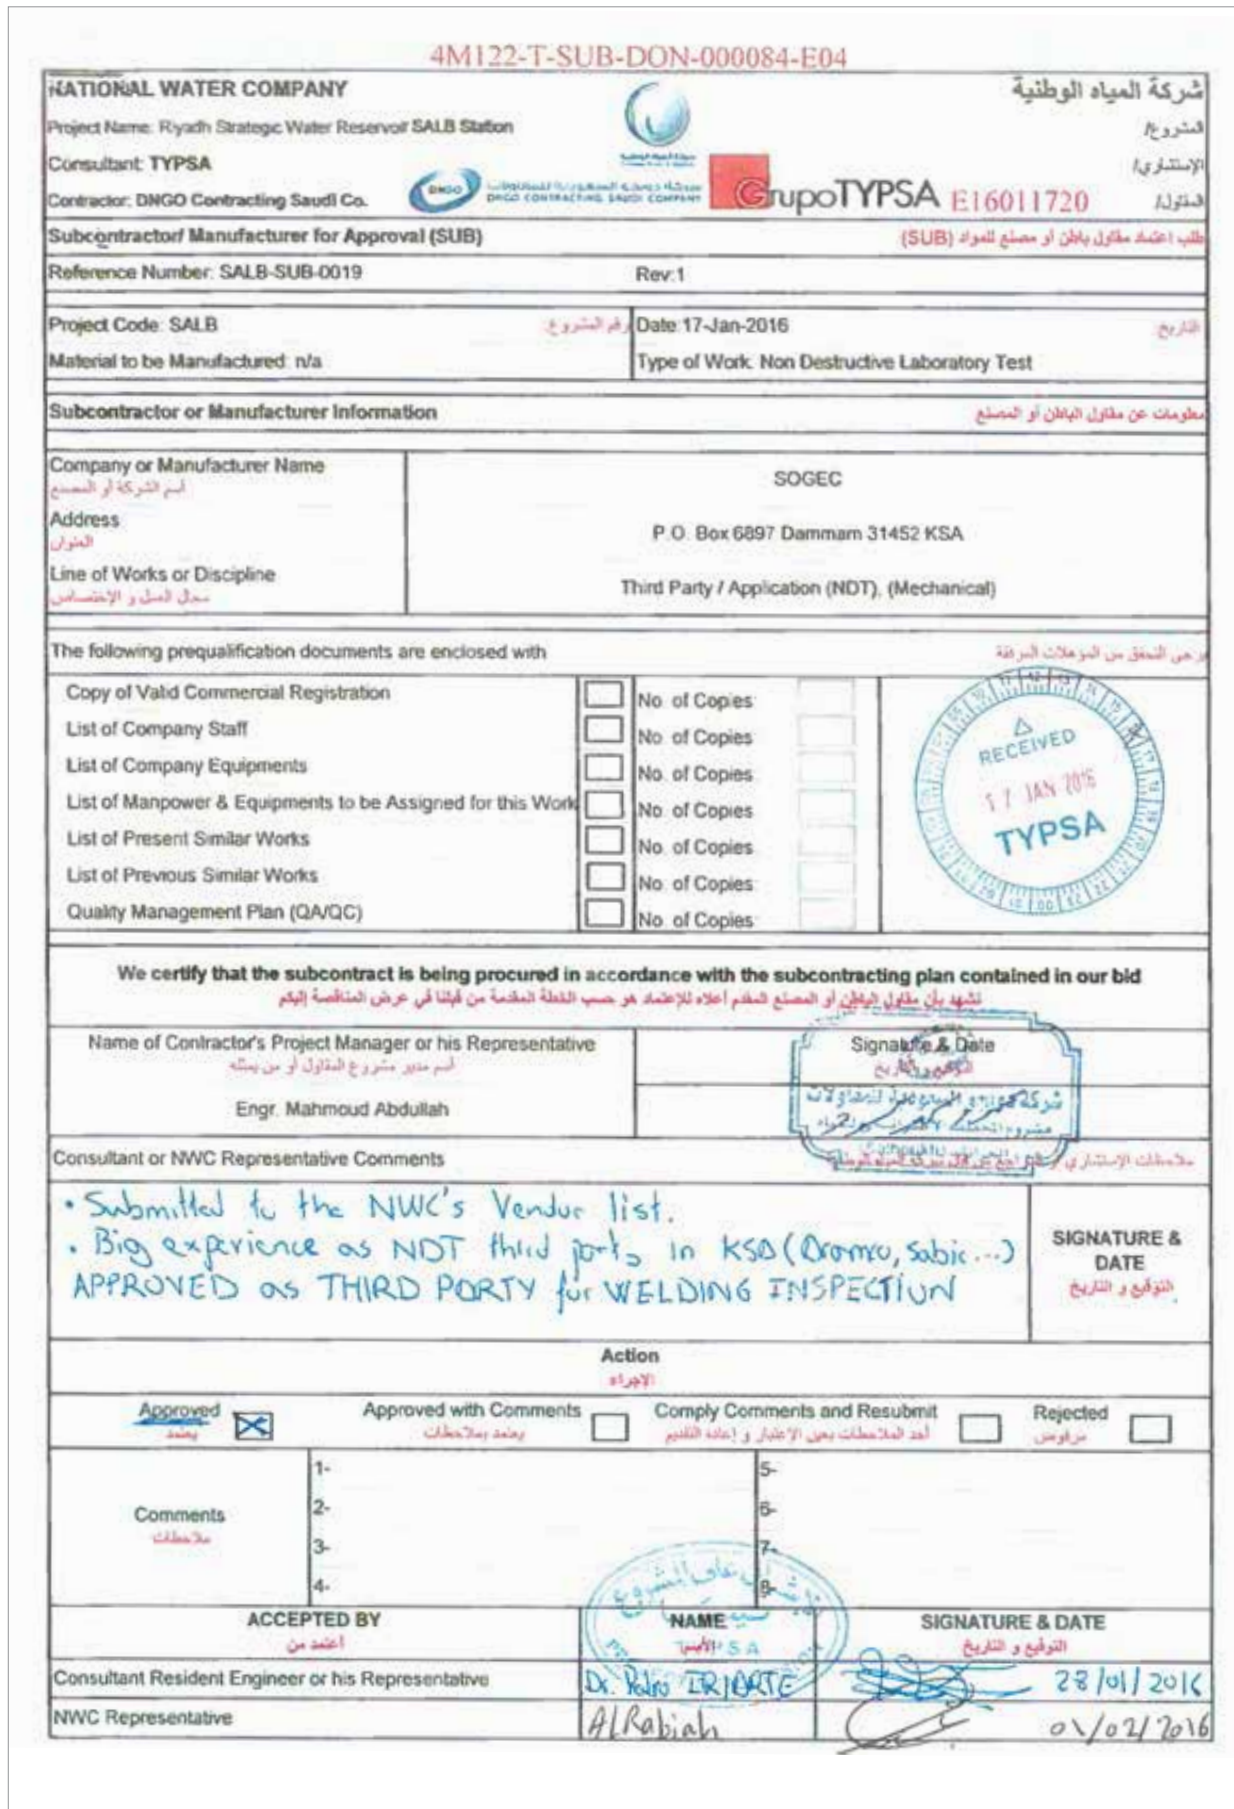 4M122-T-SUB-DON-000084-E04
NATIONAL WATER COMPANY
شركة المياه الوطنية
Project Name: Riyadh Strategic Water Reservoir SALB Station
المشروع/
Consultant: TYPSA
الإستشاري/
Contractor: DNGO Contracting Saudi Co.
DNGO
DNGO CONTRACTING SAUDI COMPANY
GrupoTYPSA E16011720
المقاول/
Subcontractor/ Manufacturer for Approval (SUB)
طلب اعتماد مقاول باطن أو مصنع للمواد (SUB)
Reference Number: SALB-SUB-0019
Rev:1
Project Code: SALB
رقم المشروع:
Date:17-Jan-2016
التاريخ:
Material to be Manufactured: n/a
Type of Work: Non Destructive Laboratory Test
Subcontractor or Manufacturer Information
معلومات عن مقاول الباطن أو المصنع
Company or Manufacturer Name
أسم الشركة أو المصنع
SOGEC
Address
العنوان
P.O. Box 6897 Dammam 31452 KSA
Line of Works or Discipline
مجال العمل و الإختصاص
Third Party / Application (NDT), (Mechanical)
The following prequalification documents are enclosed with
يرجى التحقق من المؤهلات المرفقة
Copy of Valid Commercial Registration
No. of Copies:
List of Company Staff
No. of Copies
List of Company Equipments
No. of Copies
List of Manpower & Equipments to be Assigned for this Work
No. of Copies
List of Present Similar Works
No. of Copies
List of Previous Similar Works
No. of Copies:
Quality Management Plan (QA/QC)
No. of Copies
RECEIVED
17 JAN 2016
TYPSA
We certify that the subcontract is being procured in accordance with the subcontracting plan contained in our bid
نشهد بأن مقاول الباطن أو المصنع المقدم أعلاه للإعتماد هو حسب الخطة المقدمة من قبلنا في عرض المناقصة إليكم
Name of Contractor's Project Manager or his Representative
أسم مدير مشروع المقاول أو من يمثله
Signature & Date
التوقيع و التاريخ
Engr. Mahmoud Abdullah
Consultant or NWC Representative Comments
• Submitted to the NWC's Vendor list.
• Big experience as NDT third party in KSA (Aramco, Sabic...)
APPROVED as THIRD PARTY for WELDING INSPECTION
SIGNATURE &
DATE
التوقيع و التاريخ
Action
الإجراء
Approved
يعتمد
Approved with Comments
يعتمد بملاحظات
Comply Comments and Resubmit
أخذ الملاحظات بعين الإعتبار و إعادة التقديم
Rejected
مرفوض
Comments
ملاحظات
1-
2-
3-
4-
5-
6-
7-
8-
ACCEPTED BY
أعتمد من
NAME
الأسم
TYPSA
SIGNATURE & DATE
التوقيع و التاريخ
Consultant Resident Engineer or his Representative
Dr. Pedro IRIARTE
28/01/2016
NWC Representative
AlRabiah
01/02/2016